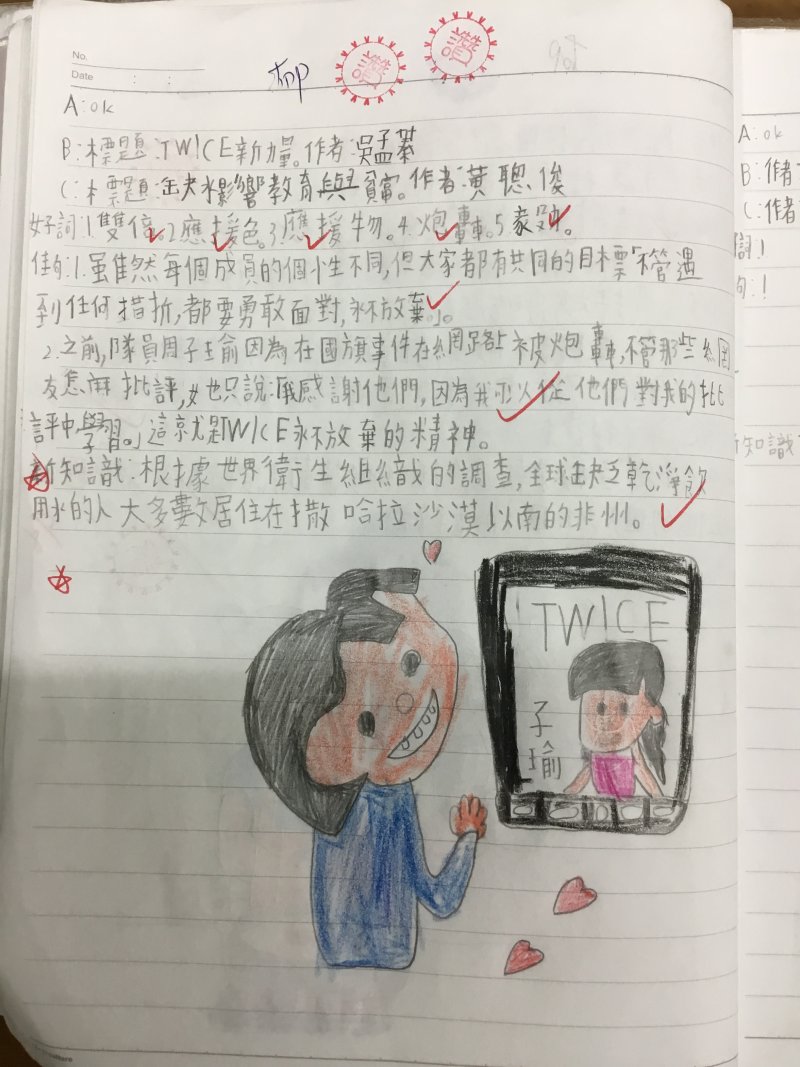 No.
Date : :
讚
讚
A:ok
B:標題:TWICE新力量。作者:吳孟蓁
C:標題:缺水影響教育與貧富。作者:黃聰俊
好詞:1.雙倍。2.應援色。3.應援物。4.炮轟。5.衰敗。
佳句:1.雖然每個成員的個性不同,但大家都有共同的目標「不管遇
到任何措折,都要勇敢面對,永不放棄。」
2.之前,隊員周子瑜因為在國旗事件在網路上被炮轟,不管那些網
友怎麻批評,她也只說:「我感謝他們,因為我可以從他們對我的批
評中學習。」這就是TWICE永不放棄的精神。
新知識:根據世界衛生組織的調查,全球缺乏乾淨飲
用水的人大多數居住在撒哈拉沙漠以南的非州。
TWICE
子
瑜
A:ok
B:作者
C:作者
詞!
句:!
新知識